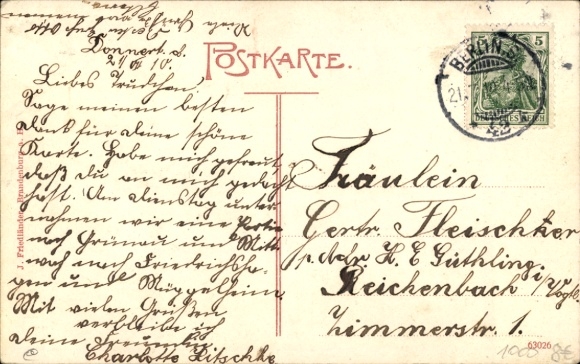 POSTKARTE.
Donnert. d.
21.10.
Liebes Trudchen!
Sage meinen besten
Dank für deine schöne
Karte. Habe mich gefreut,
daß du an mich gedacht
hast. Am Dienstag unter-
nahmen wir eine Partie
nach Grünau und Mitt-
woch nach Friedrichsha-
gen und Müggelheim.
Mit vielen Grüßen
verbleibe ich
deine Freundin
Charlotte Litschke
J. Friedländer, Brandenburg a. H.
BERLIN S
21.
42
5 5
DEUTSCHES REICH
Fräulein
Gertr. Fleischker
p. Adr. H. E. Güthling.
Reichenbach i/Vogtl.
Zimmerstr. 1.
63026